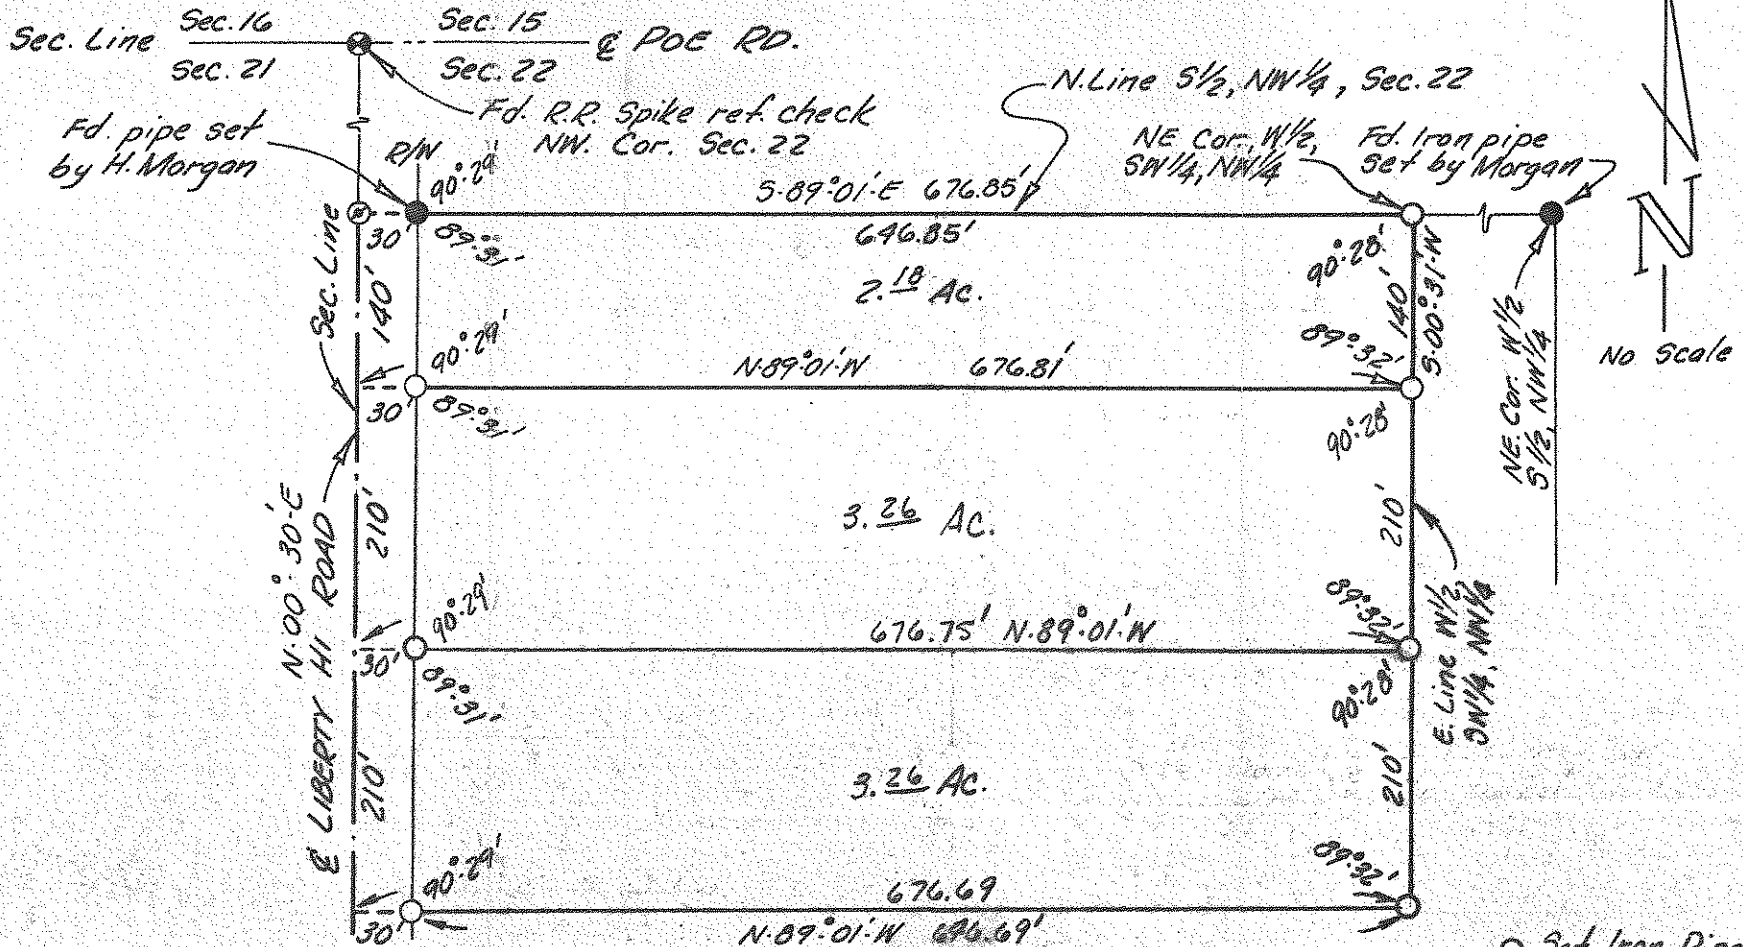 Sec. Line Sec. 16 Sec. 15 ℄ POE RD.
Sec. 21 Sec. 22
Fd. R.R. Spike ref. check
NW. Cor. Sec. 22
N. Line S1/2, NW1/4, Sec. 22
Fd. pipe set
by H. Morgan
R/W
NE Cor. W1/2,
SW1/4, NW1/4
Fd. Iron pipe
set by Morgan
N
No Scale
90°-29'
S-89°-01'-E 676.85'
30'
89°-31'
646.85'
90°-28'
2.18 Ac.
Sec. Line
140'
140'
S-00°-31'-W
NE. Cor. W1/2
S1/2, NW1/4
90°-29'
89°-32'
N-89°-01'-W 676.81'
30'
89°-31'
90°-28'
N-00°-30'-E
℄ LIBERTY HI ROAD
210'
3.26 Ac.
210'
E. Line W1/2
SW1/4, NW1/4
90°-29'
89°-32'
676.75' N-89°-01'-W
30'
89°-31'
90°-28'
210'
3.26 Ac.
210'
90°-29'
89°-32'
676.69
30'
N-89°-01'-W
Set Iron Pipe